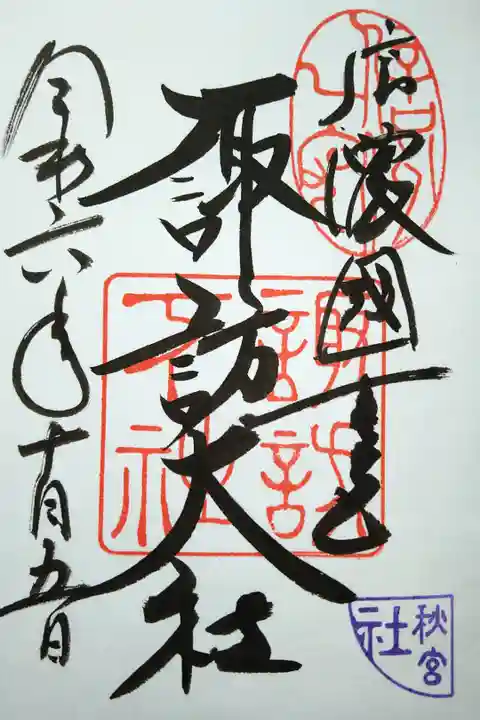 信濃國一宮
諏訪大社
令和六年十月五日
諏訪
下社
秋宮
社